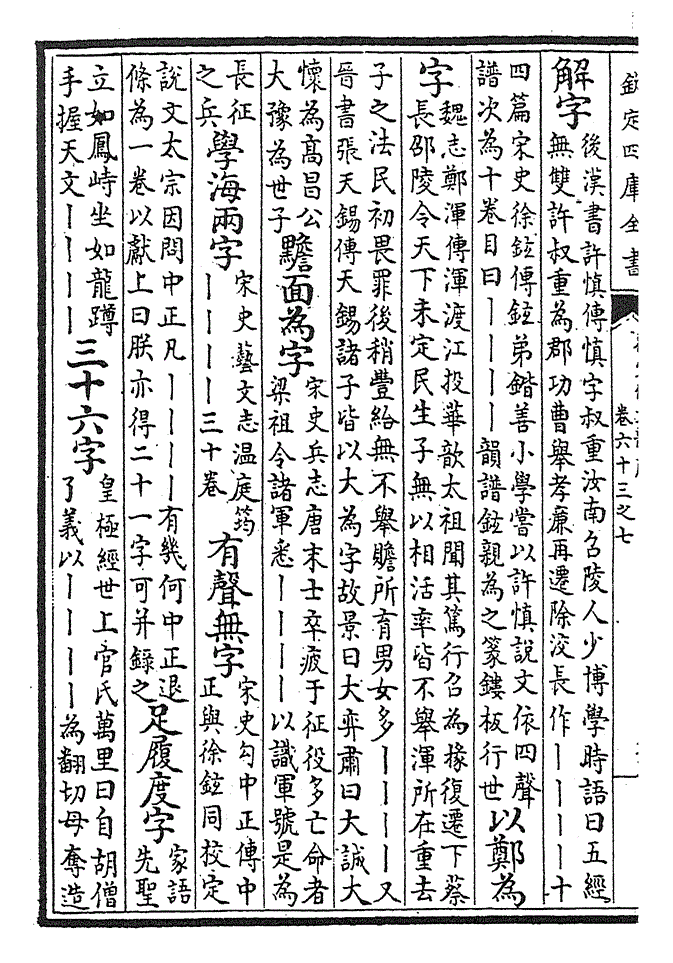 欽定四庫全書
卷六十三之七
解字
後漢書許慎傳慎字叔重汝南召陵人少博學時語曰五經
無雙許叔重為郡功曹舉孝廉再遷除洨長作丨丨丨丨十
四篇宋史徐鉉傳鉉弟鍇善小學嘗以許慎說文依四聲
譜次為十卷目曰丨丨丨丨韻譜鉉親為之篆鏤板行世
以鄭為
字
魏志鄭渾傳渾渡江投華歆太祖聞其篤行召為掾復遷下蔡
長邵陵令天下未定民生子無以相活率皆不舉渾所在重去
子之法民初畏罪後稍豐給無不舉贍所育男女多丨丨丨丨又
晉書張天錫傳天錫諸子皆以大為字故景曰大弈肅曰大誠大
懷為高昌公
大豫為世子
黵面為字
宋史兵志唐末士卒疲于征役多亡命者
梁祖令諸軍悉丨丨丨丨以識軍號是為
長征
之兵
學海兩字
宋史藝文志温庭筠
丨丨丨丨三十卷
有聲無字
宋史勾中正傳中
正與徐鉉同校定
說文太宗因問中正凡丨丨丨丨有幾何中正退
條為一卷以獻上曰朕亦得二十一字可并錄之
足履度字
家語
先聖
立如鳳峙坐如龍蹲
手握天文丨丨丨丨
三十六字
皇極經世上官氏萬里曰自胡僧
了義以丨丨丨丨為翻切母奪造